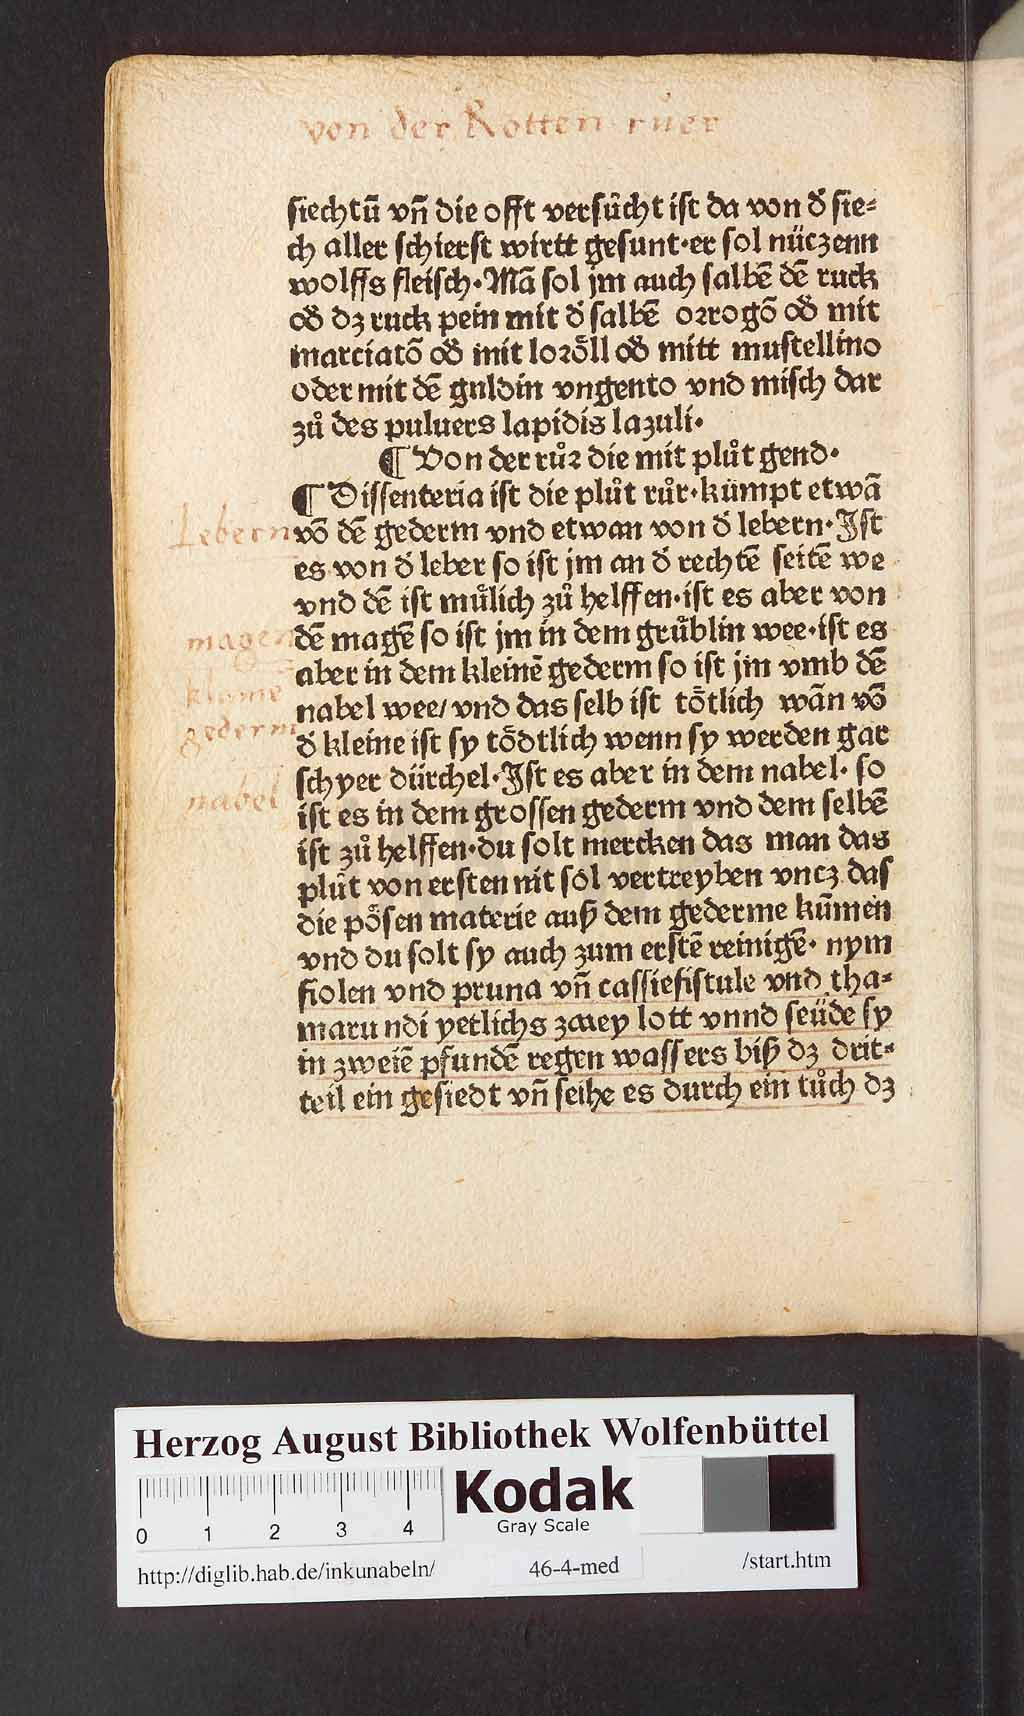 von der Rotten rüer
siechtū vn̄ die offt versůcht ist da von d̕ sie⸗
ch aller schierst wirtt gesunt·er sol nüczenn
wolffs fleisch·Mā sol jm auch salbē dē ruck
od̕ dz ruck pein mit d̕ salbē orrogō od̕ mit
marciatō od̕ mit loroͤll od̕ mitt mustellino
oder mit dē guldin vngento vnd misch dar
zů des puluers lapidis lazuli·
¶ Von der růr die mit plůt gend·
¶ Dissenteria ist die plůt růr·kümpt etwā
Lebern
vō dē gederm vnd etwan von d̕ lebern·Jst
es von d̕ leber so ist jm an d̕ rechtē seitē we
vnd dē ist muͤlich zů helffen·ist es aber von
magen
dē magē so ist jm in dem gruͤblin wee·ist es
aber in dem kleinē gederm so ist jm vmb dē
klaine
nabel wee/ vnd das selb ist toͤtlich wān vō
gederm
d̕ kleine ist sy toͤdtlich wenn sy werden gar
schyer dürchel·Jst es aber in dem nabel· so
nabel
ist es in dem grossen gederm vnd dem selbē
ist zů helffen·du solt mercken das man das
plůt von ersten nit sol vertreyben vncz das
die poͤsen materie auß dem gederme kūmen
vnd du solt sy auch zum erstē reinigē· nym
fiolen vnd pruna vn̄ cassiefistule vnd tha⸗
maru ndi yetlichs zwey lott vnnd seüde sy
in zweiē pfundē regen wassers biß dz drit⸗
teil ein gesiedt vn̄ seihe es durch ein tůch dz
Herzog August Bibliothek Wolfenbüttel
Kodak
Gray Scale
0 1 2 3 4
http://diglib.hab.de/inkunabeln/ 46-4-med /start.htm